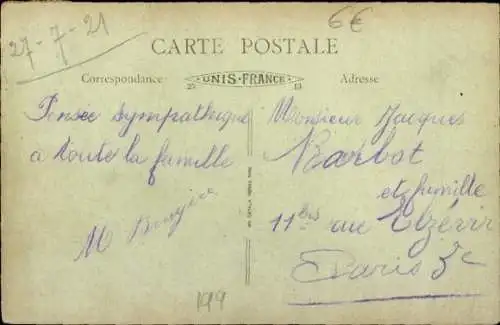 27-7-21
6€
CARTE POSTALE
Correspondance
UNIS-FRANCE
Adresse
Pensée sympathique
a toute la famille
M
199
Monsieur Jacques
Barbot
et famille
11bis rue Elzévir
Paris 3e